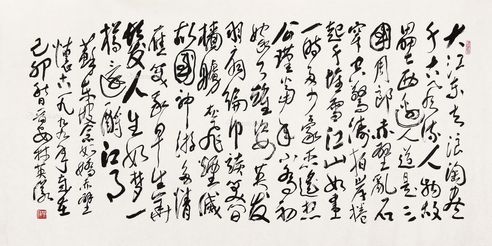 大江东去浪淘尽
千古风流人物故
垒西边人道是三
國周郎赤壁乱石
穿空惊涛拍岸卷
起千堆雪江山如画
一时多少豪杰遥想
公瑾当年小乔初
嫁了雄姿英发
羽扇纶巾谈笑间
樯橹灰飞烟灭
故國神游多情
应笑我早生华
发人生如梦一
樽还酹江月
苏东坡念奴娇赤壁
怀古一九九九年
己卯秋日